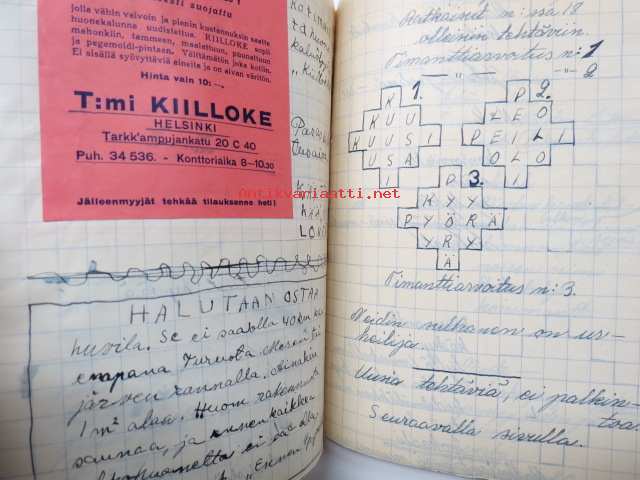 jolla vähin vaivoin ja pienin kustannuksin saatte
huonekalunne uudistettua. KIILLOKE sopii
mahonkiin, tammeen, maalattuun, puunattuun
ja pegemoldi-pintaan. Välttämätön joka kotiin.
Ei sisällä syövyttäviä aineita ja on aivan väritön.
Hinta vain 10:—
T:mi KIILLOKE
HELSINKI
Tarkk'ampujankatu 20 C 40
Puh. 34 536. - Konttoriaika 8–10.30
Jälleenmyyjät tehkää tilauksenne heti!
HALUTAAN OSTAA
huvila. Se ei saa olla 40 km
enapana Turusta
järven rannalla.
1 m² alaa. Huom
saunaa, ja ennen kaikkea
ei saa olla
Ratkaisut n:ssa 18
olleisiin tehtäviin.
Timanttiarvoitus n:1
— " — — " — 2
1.
K
KUU
KUUSI
USA
I
2.
P
LEO
PEILI
OLO
I
3.
P
KYY
PYÖRÄ
YRY
Ä
Timanttiarvoitus n:3.
on ur-
heilija.
Uusia tehtäviä, ei palkin-
toa.
Seuraavalla sivulla.
Antikvariaatti.net